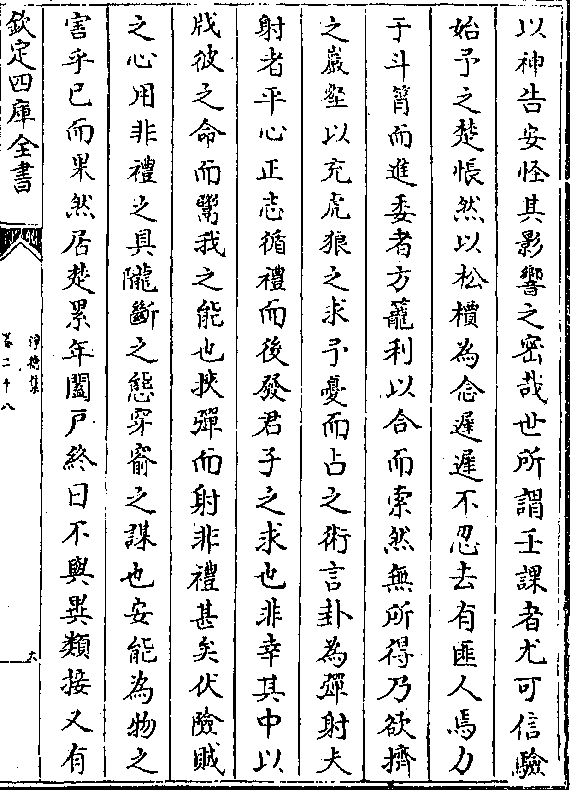 以神告安怪其影響之密哉世所謂壬課者尤可信驗
始予之楚悵然以松檟為念遲遲不忍去有匪人焉力
于斗筲而進委者方蘢利以合而索然無所得乃欲擠
之巖壑以充虎狼之求予憂而占之術言卦為彈射夫
射者平心正志循禮而後發君子之求也非幸其中以
戕彼之命而鬻我之能也挾彈而射非禮甚矣伏險賊
之心用非禮之具隴斷之態穿窬之謀也安能為物之
害乎已而果然居楚累年闔戶終日不與異類接又有
欽定四庫全書
淨德集
卷二十八